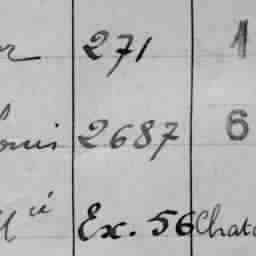 271 1
ouis 2687 6
cié Ex. 56 Chat